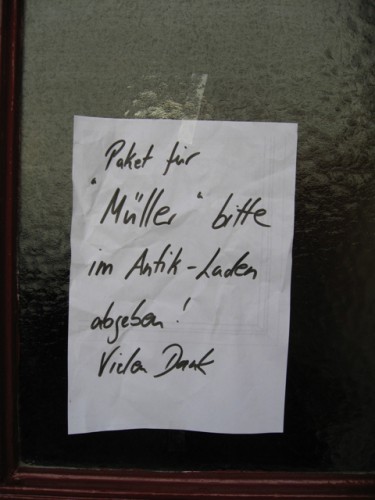 Paket für
"Müller" bitte
im Antik-Laden
abgeben!
Vielen Dank